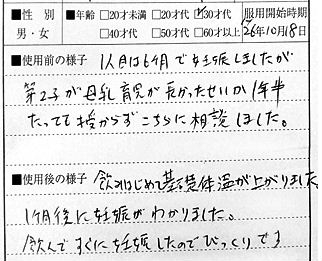 ■性別 ■年齢 □20才未満 □20才代 ☑30才代 服用開始時期
男・女 □40才代 □50才代 □60才以上 26年10月18日
■使用前の様子 1人目は6ヶ月で妊娠しましたが
第2子が母乳育児が長かったせいか1年半
たっても授からずこちらに相談しました。
■使用後の様子 飲みはじめて基礎体温が上がりました
1ヶ月後に妊娠がわかりました。
飲んですぐに妊娠したのでびっくりです